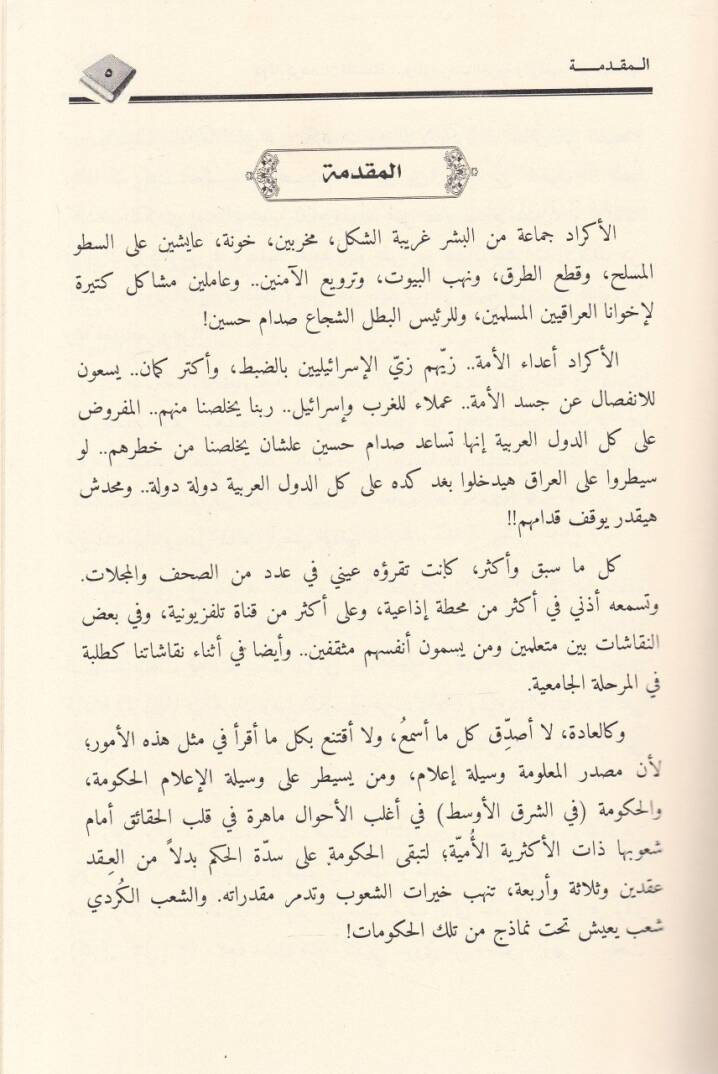 المقدمة
٥
المقدمة
الأكراد جماعة من البشر غريبة الشكل، مخربين، خونة، عايشين على السطو
المسلح، وقطع الطرق، ونهب البيوت، وترويع الآمنين.. وعاملين مشاكل كتيرة
لإخوانا العراقيين المسلمين، وللرئيس البطل الشجاع صدام حسين!
الأكراد أعداء الأمة.. زيّهم زيّ الإسرائيليين بالضبط، وأكتر كمان.. يسعون
للانفصال عن جسد الأمة.. عملاء للغرب وإسرائيل.. ربنا يخلصنا منهم.. المفروض
على كل الدول العربية إنها تساعد صدام حسين علشان يخلصنا من خطرهم.. لو
سيطروا على العراق هيدخلوا بغد كده على كل الدول العربية دولة دولة.. ومحدش
هيقدر يوقف قدامهم!!
كل ما سبق وأكثر، كانت تقرؤه عيني في عدد من الصحف والمجلات.
وتسمعه أذني في أكثر من محطة إذاعية، وعلى أكثر من قناة تلفزيونية، وفي بعض
النقاشات بين متعلمين ومن يسمون أنفسهم مثقفين.. وأيضا في أثناء نقاشاتنا كطلبة
في المرحلة الجامعية.
وكالعادة، لا أصدِّق كل ما أسمعُ، ولا أقتنع بكل ما أقرأ في مثل هذه الأمور؛
لأن مصدر المعلومة وسيلة إعلام، ومن يسيطر على وسيلة الإعلام الحكومة،
والحكومة (في الشرق الأوسط) في أغلب الأحوال ماهرة في قلب الحقائق أمام
شعوبها ذات الأكثرية الأُميّة؛ لتبقى الحكومة على سدّة الحكم بدلاً من العِقد
عقدين وثلاثة وأربعة، تنهب خيرات الشعوب وتدمر مقدراته. والشعب الكُردي
شعب يعيش تحت نماذج من تلك الحكومات!